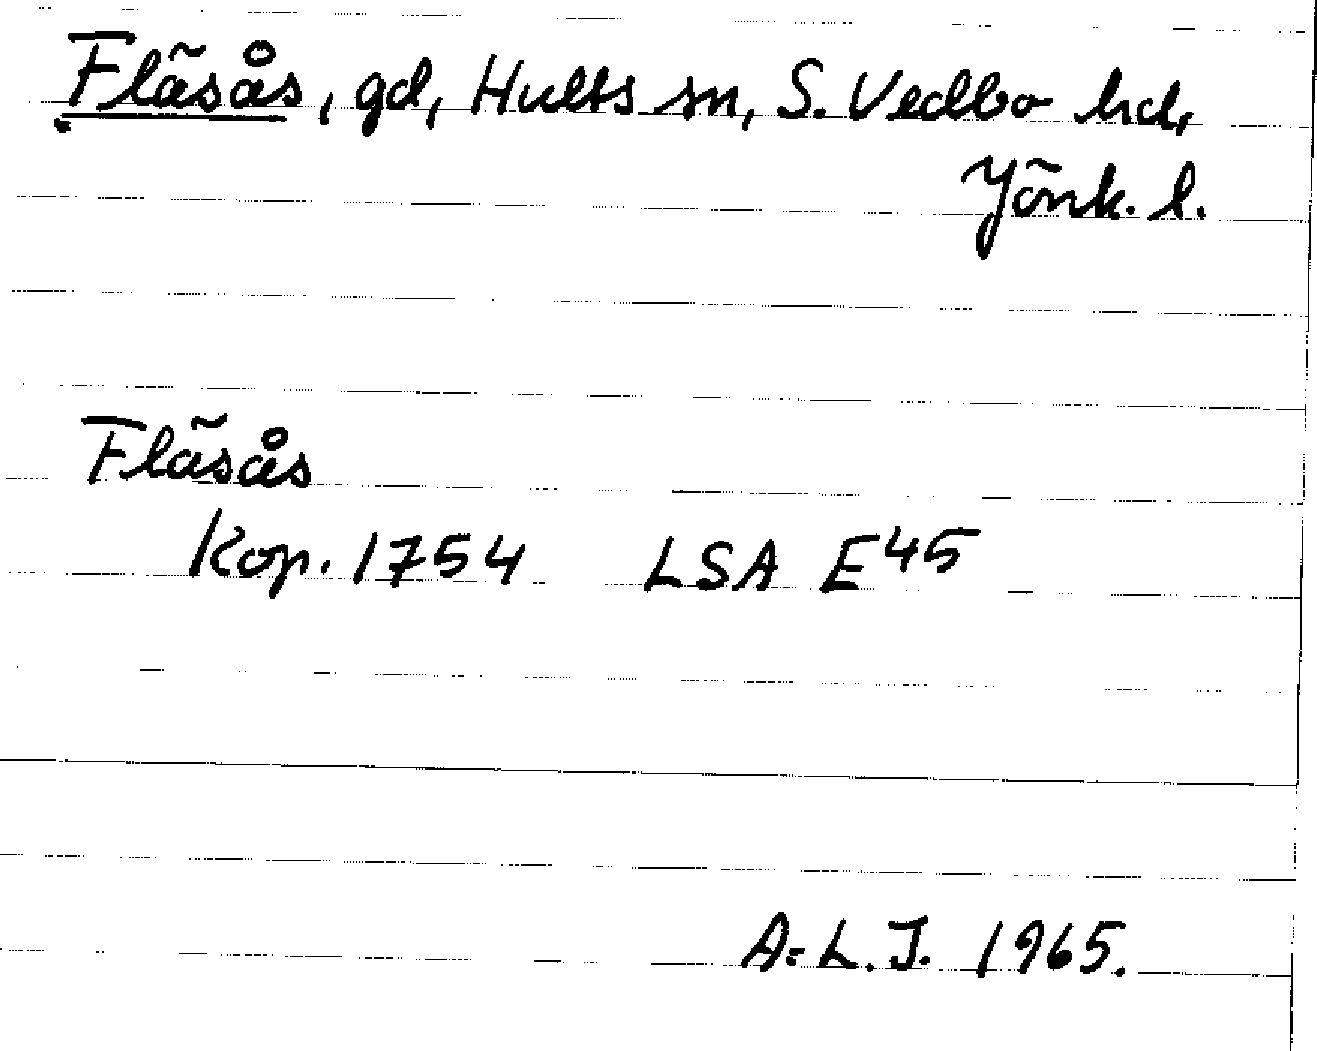 Fläsås, gd, Hults sn, S. Vedbo hd,
Jönk. l.
Fläsås
Kop. 1754 LSA E45
A-L. J. 1965.